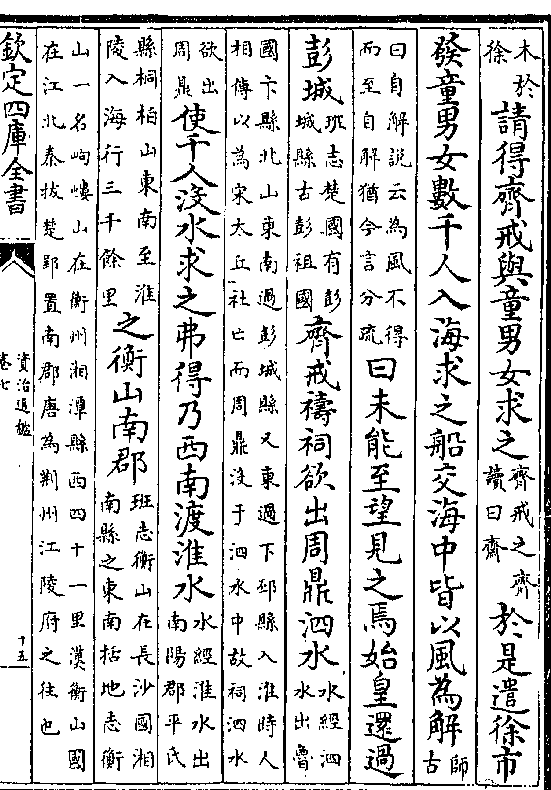 木於
徐
請得齊戒與童男女求之
齊戒之齊
讀曰齋
於是遣徐市
發童男女數千人入海求之船交海中皆以風為解
師
古
曰自解說云為風不得
而至自解猶今言分疏
曰未能至望見之焉始皇還過
彭城
班志楚國有彭
城縣古彭祖國
齊戒禱祠欲出周鼎泗水
水經泗
水出魯
國卞縣北山東南過彭城縣又東過下邳縣入淮時人
相傳以為宋太丘社亡而周鼎沒于泗水中故祠泗水
欲出
周鼎
使千人沒水求之弗得乃西南渡淮水
水經淮水出
南陽郡平氏
縣桐柏山東南至淮
陵入海行三千餘里
之衡山南郡
班志衡山在長沙國湘
南縣之東南括地志衡
山一名岣嶁山在衡州湘潭縣西四十一里漢衡山國
在江北秦拔楚郢置南郡唐為荆州江陵府之往也
欽定四庫全書
資治通鑑
卷七
十五